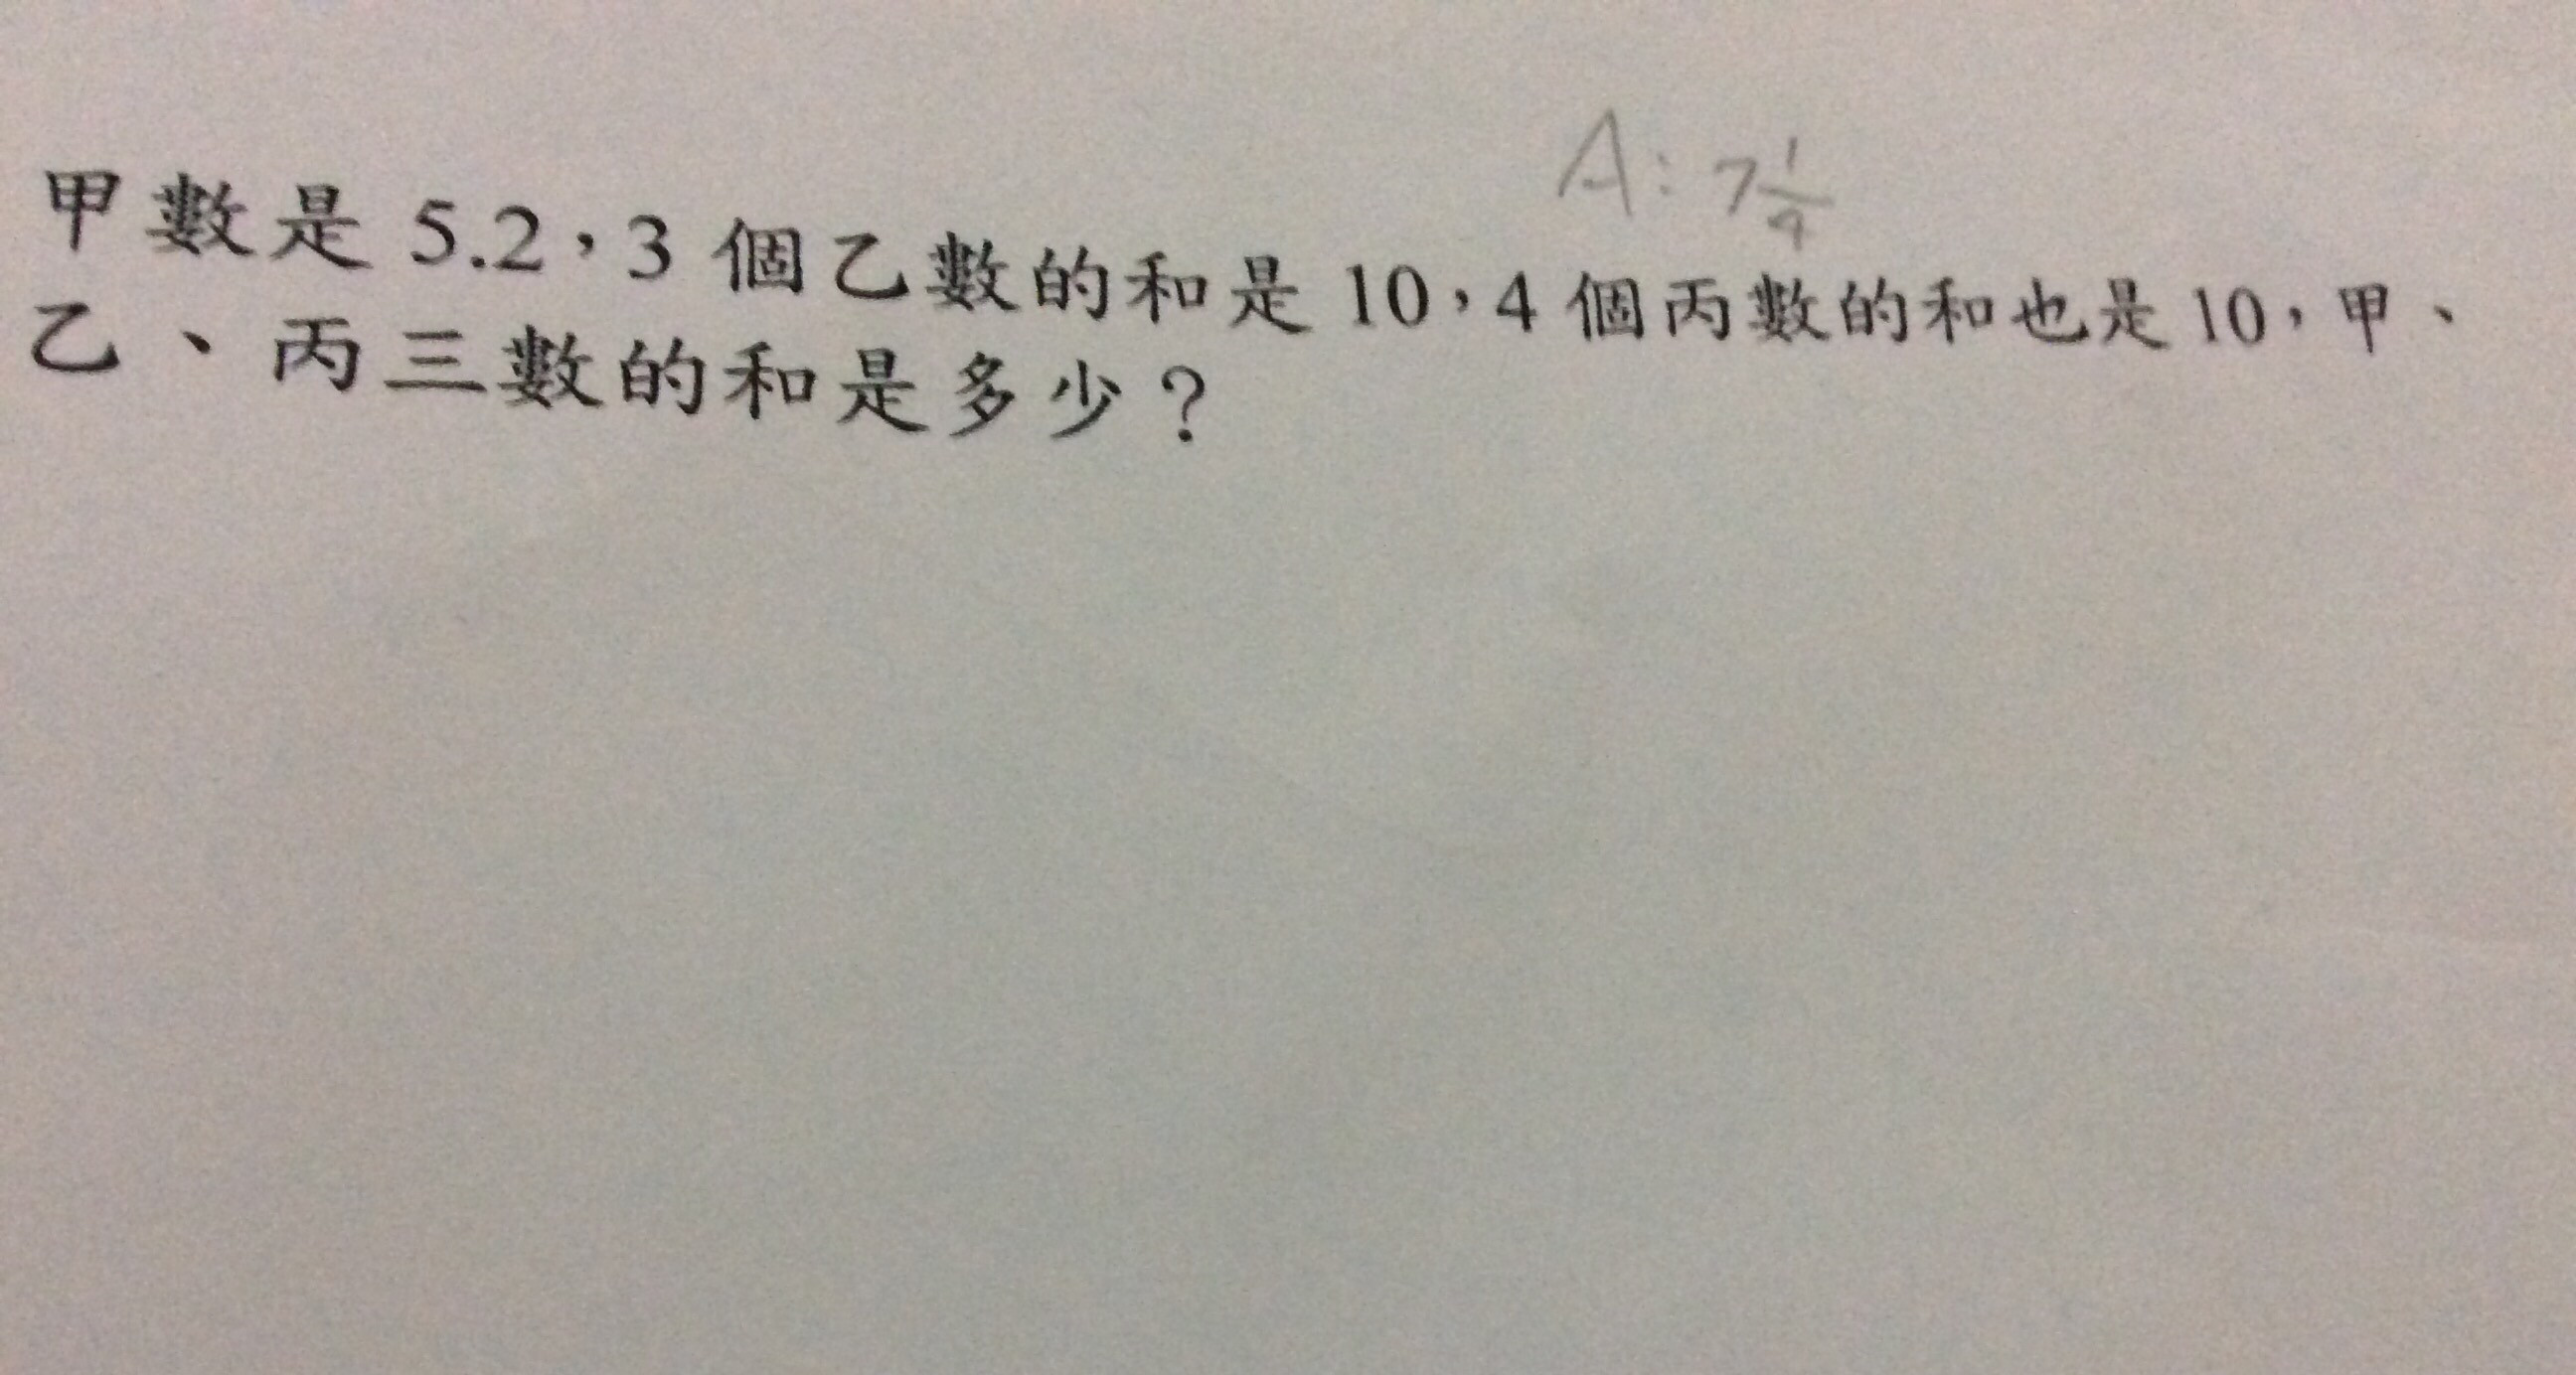 A: 7 1/9
甲數是 5.2，3 個乙數的和是 10，4 個丙數的和也是 10，甲、
乙、丙三數的和是多少？